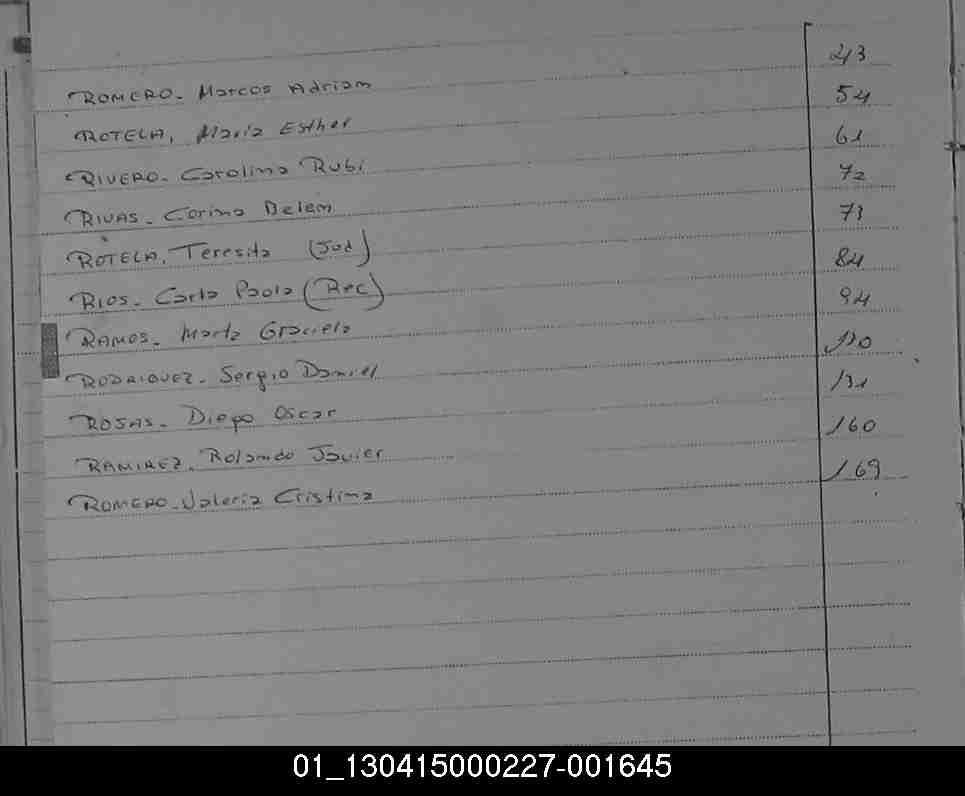 ROMERO. Marcos Adrian 43
ROTELA, Maria Esther 54
RIVERO. Carolina Rubi 61
RIVAS. Corina Belem 72
ROTELA, Teresita (Jud) 73
RIOS. Carla Paola (Rec) 84
RAMOS. Marta Graciela 94
RODRIGUEZ. Sergio Daniel
ROSAS. Diego Oscar 131
RAMIREZ. Rolando Javier 160
ROMERO. Valeria Cristina 169
01_130415000227-001645